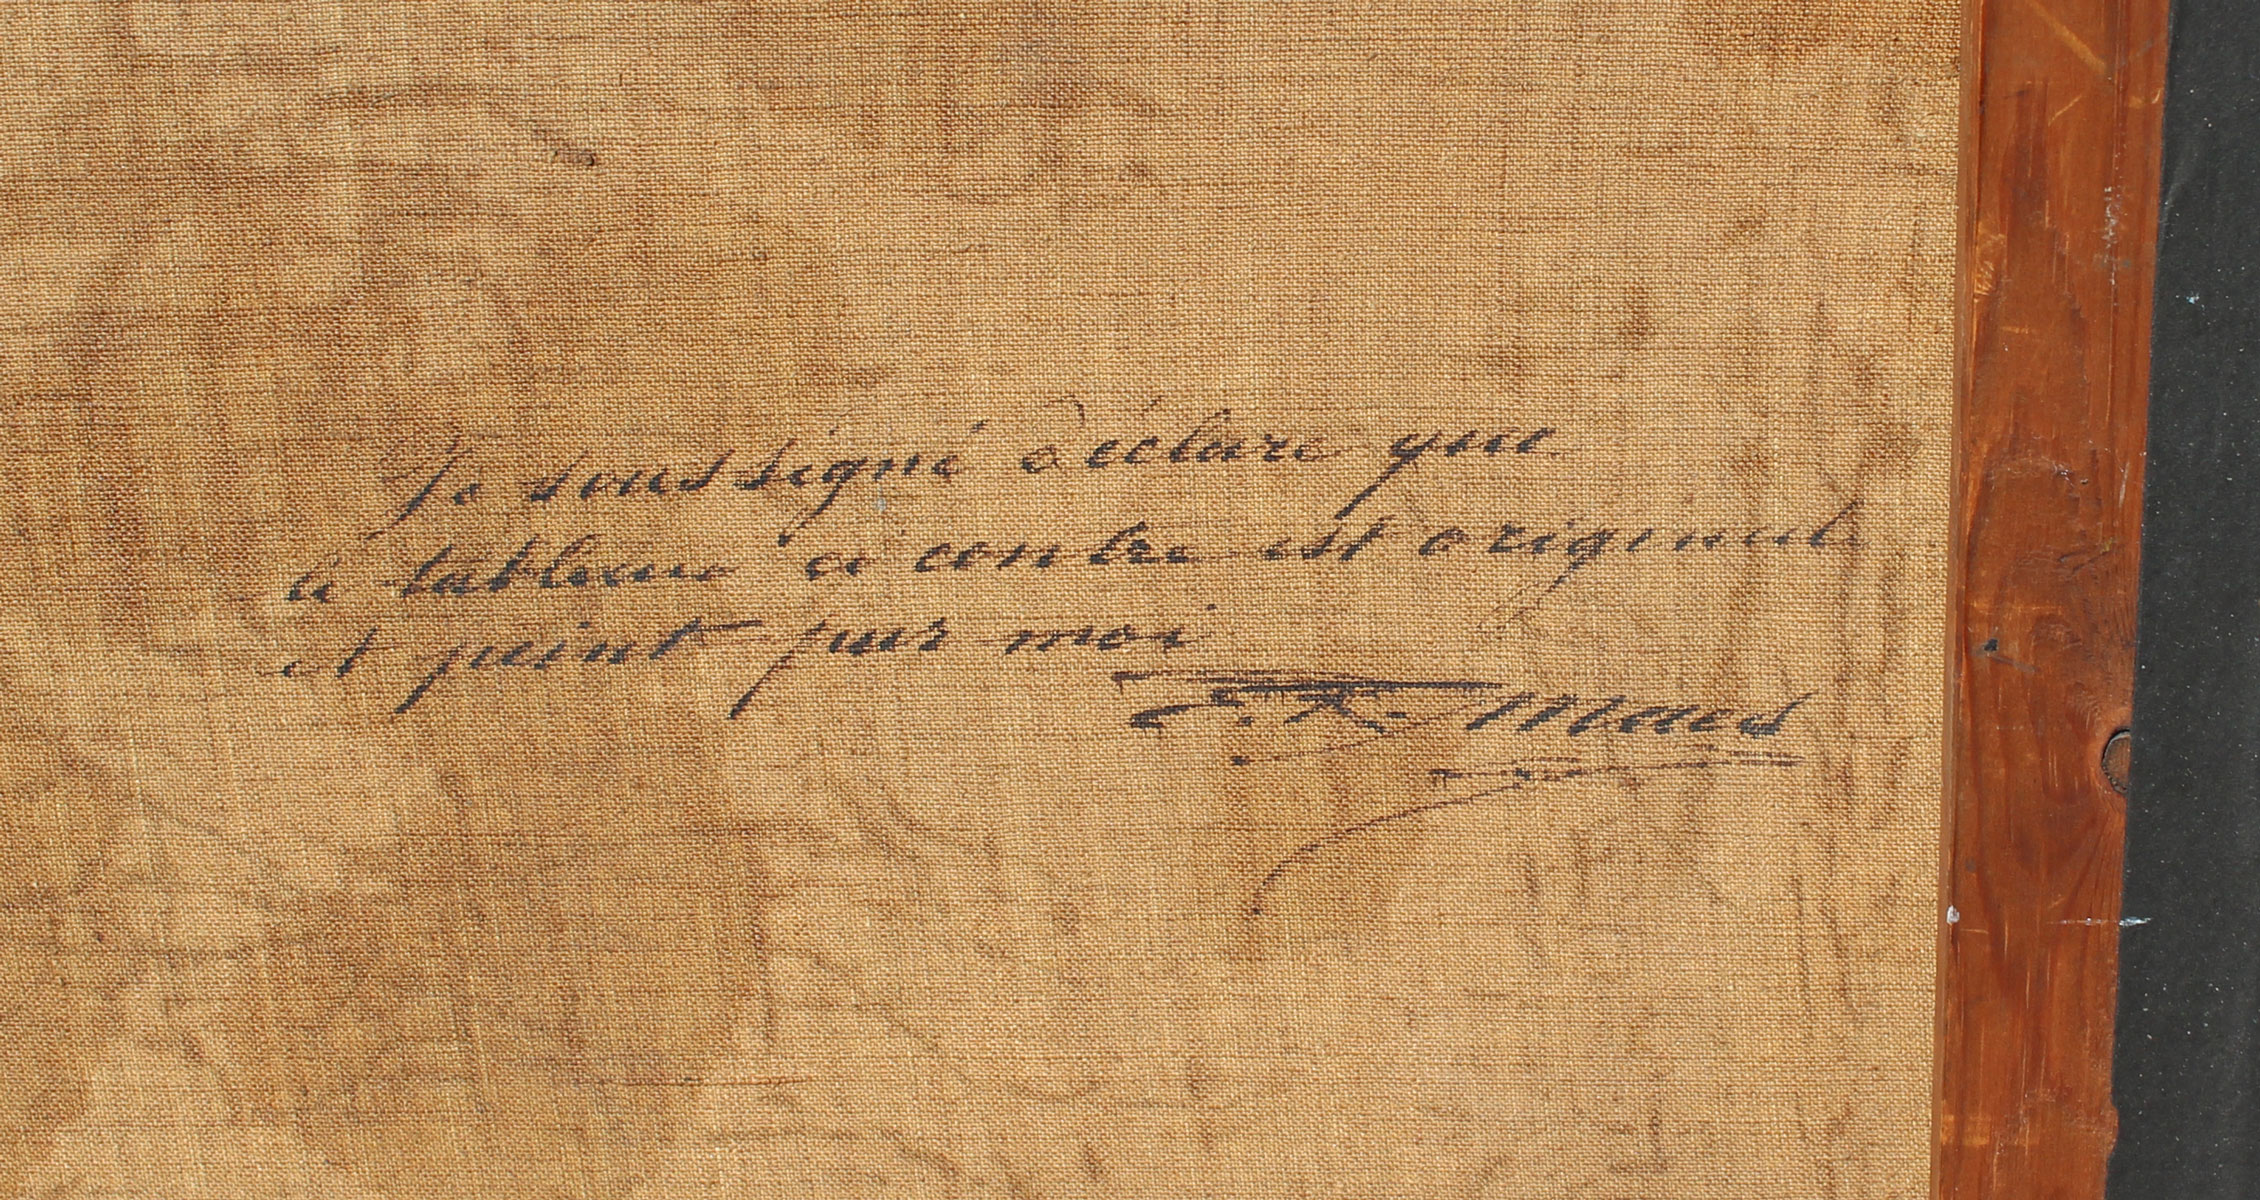 Je soussigné déclare que
le tableau ci contre est original
et peint par moi
E. R. Maes